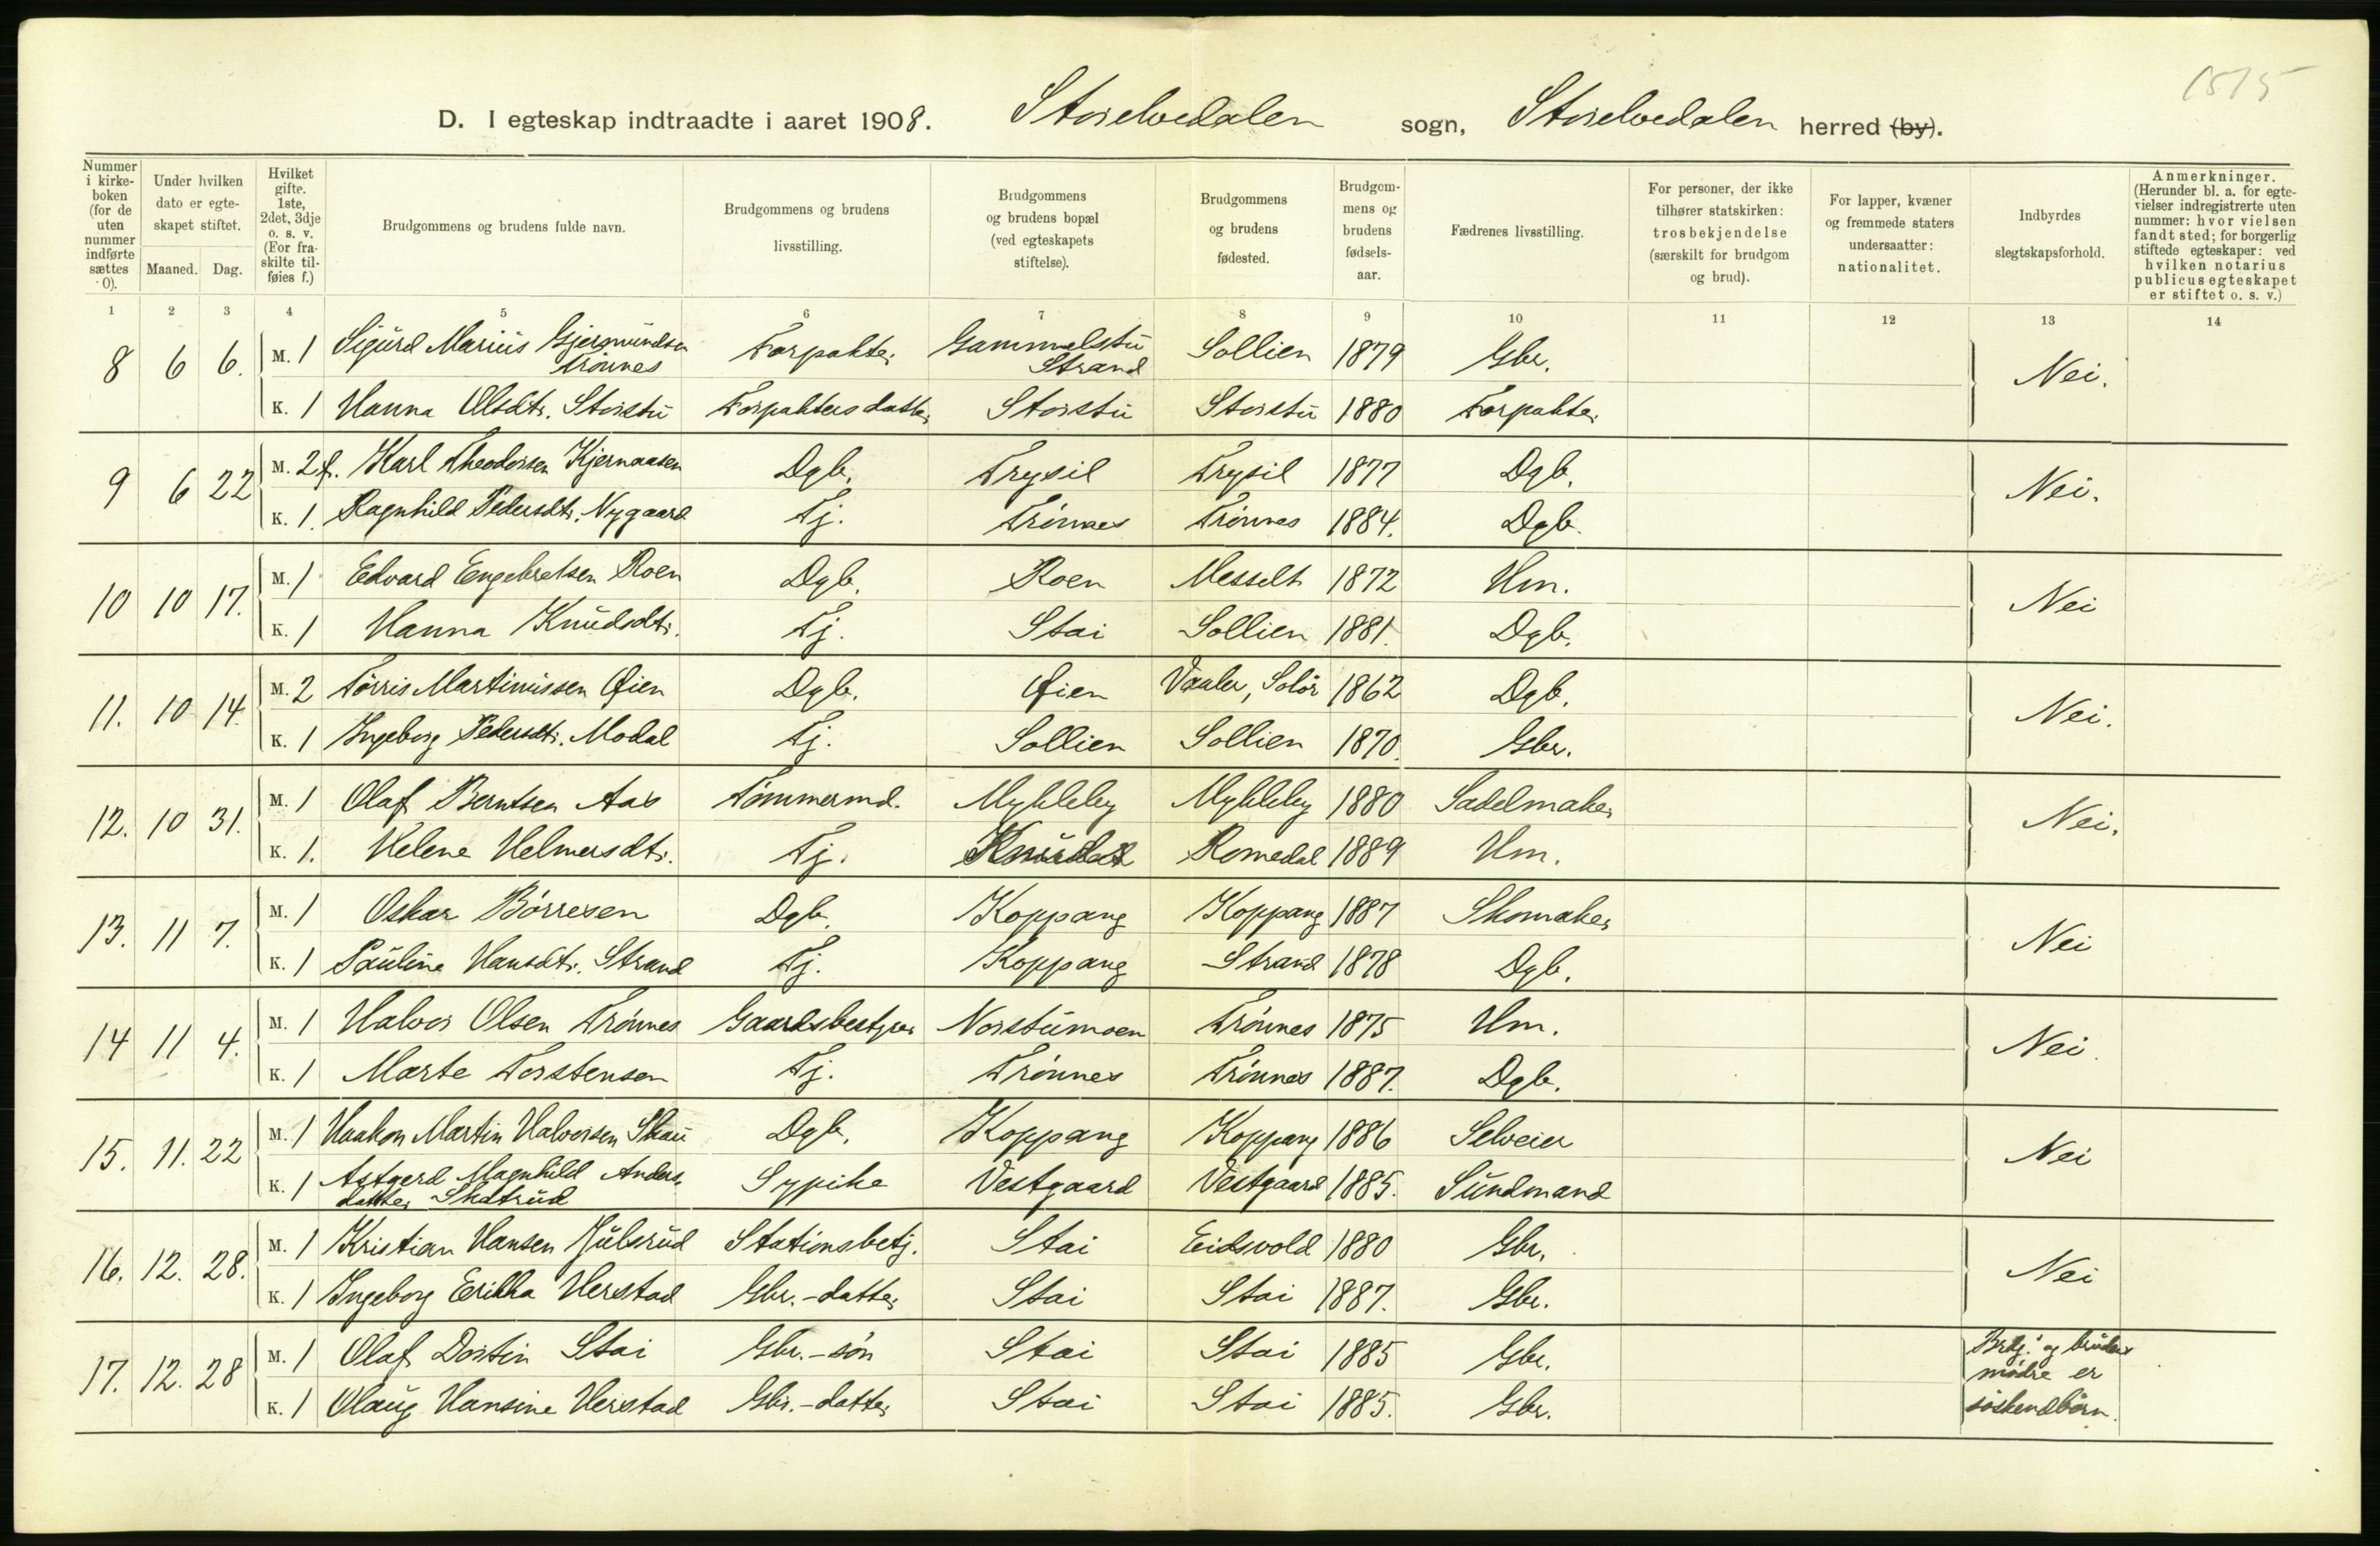 1515
D. I egteskap indtraadte i aaret 1908. Storelvedalen sogn, Storelvedalen herred (by).
Nummer i kirke-boken (for de uten nummer indførte sættes 0).
Under hvilken dato er egte-skapet stiftet.
Maaned. Dag.
Hvilket gifte. 1ste, 2det, 3dje o. s. v. (For fra-skilte til-føies f.)
Brudgommens og brudens fulde navn.
Brudgommens og brudens livsstilling.
Brudgommens og brudens bopæl (ved egteskapets stiftelse).
Brudgommens og brudens fødested.
Brudgom-mens og brudens fødsels-aar.
Fædrenes livsstilling.
For personer, der ikke tilhører statskirken: trosbekjendelse (særskilt for brudgom og brud).
For lapper, kvæner og fremmede staters undersaatter: nationalitet.
Indbyrdes slegtskapsforhold.
Anmerkninger. (Herunder bl. a. for egte-vielser indregistrerte uten nummer: hvor vielsen fandt sted; for borgerlig stiftede egteskaper: ved hvilken notarius publicus egteskapet er stiftet o. s. v.)
1 2 3 4 5 6 7 8 9 10 11 12 13 14
8 6 6. M. 1 Sigurd Marius Gjermundsen Trønnes Forpakter Gammelstu Strand Sollien 1879 Gbr. Nei.
K. 1 Hanna Olsdtr. Storstu Forpakters datter Storstu Storstu 1880 Forpakter
9 6 22 M. 2 f. Karl Theodorsen Kjernaasen Dgb. Trysil Trysil 1877 Dgb. Nei.
K. 1. Ragnhild Pedersdtr. Nygaard Tj. Trønnes Trønnes 1884. Dgb.
10 10 17. M. 1 Edvard Engebretsen Roen Dgb. Roen Messelt 1872 Hm. Nei
K. 1 Hanna Knudsdtr. Tj. Stai Sollien 1881. Dgb.
11. 10 14. M. 2 Tørris Martinussen Øien Dgb. Øien Vaaler, Solør 1862 Dgb. Nei.
K. 1 Ingeborg Pedersdtr. Modal Tj. Sollien Sollien 1870. Gbr.
12. 10 31. M. 1 Olaf Berntsen Aas Tømmermd. Mykleby Mykleby 1880 Sadelmaker Nei.
K. 1. Helene Helmersdtr. Tj. Romedal 1889 Hm.
13. 11 7. M. 1 Oskar Børresen Dgb. Koppang Koppang 1887 Skomaker Nei
K. 1 Pauline Hansdtr. Strand Tj. Koppang Strand 1878 Dgb.
14 11 4. M. 1 Halvor Olsen Trønnes Gaardsbestyrer Norstumoen Trønnes 1875 Hm. Nei.
K. 1 Marte Torstensen Tj. Trønnes Trønnes 1887. Dgb.
15. 11. 22 M. 1 Haakon Martin Halvorsen Skau Dgb. Koppang Koppang 1886 Selveier Nei
K. 1 Astgerd Magnhild Anders-datter Skatrud Sypike Vestgaard Vestgaard 1885. Sundmand
16. 12. 28. M. 1 Kristian Hansen Julsrud Stationsbetj. Stai Eidsvold 1880 Gbr. Nei
K. 1 Ingeborg Erikka Herstad Gbr.-datter Stai Stai 1887. Gbr.
17. 12. 28 M. 1 Olaf Dortin Stai Gbr.-søn Stai Stai 1885 Gbr. Brdg. og brudens mødre er søskendbørn.
K. 1 Olaug Hansine Herstad Gbr.-datter Stai Stai 1885. Gbr.